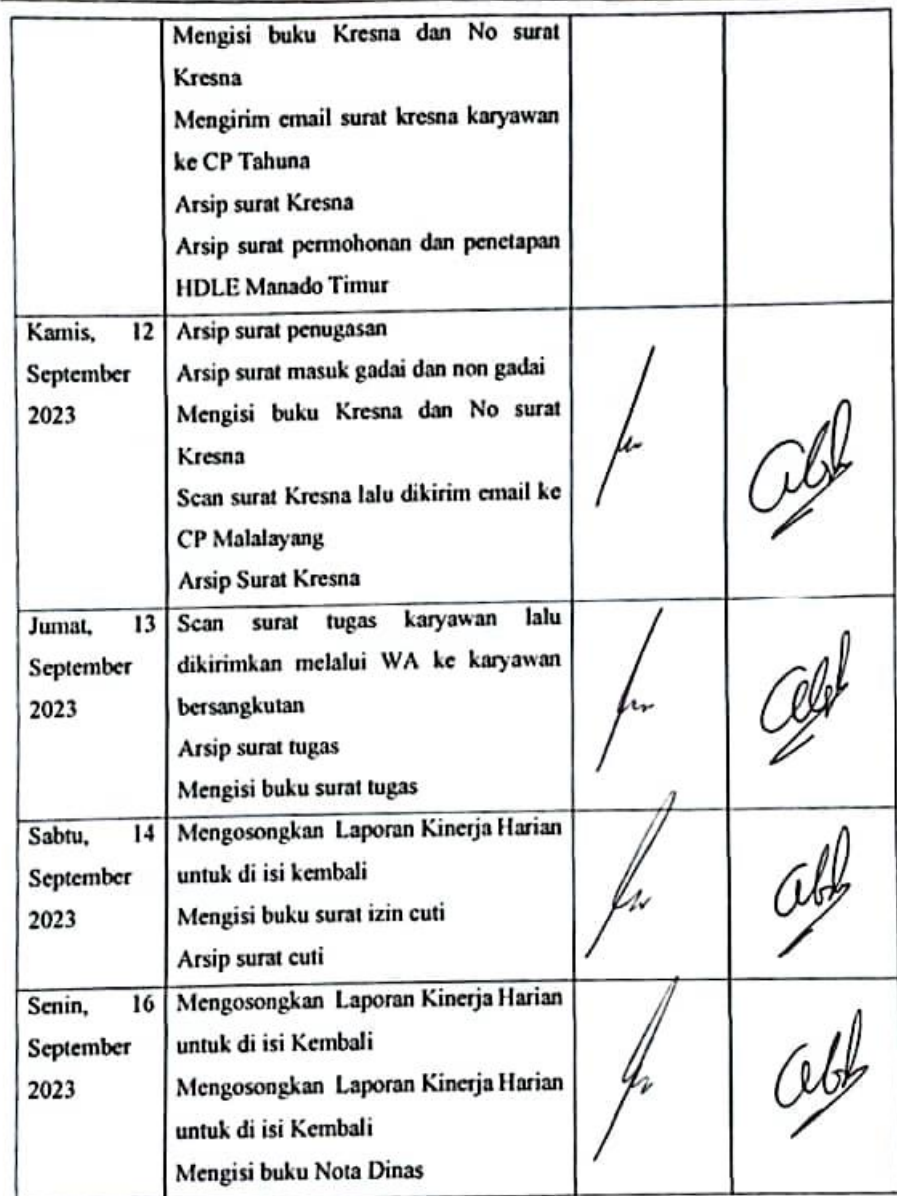 Mengisi buku Kresna dan No surat
Kresna
Mengirim email surat kresna karyawan
ke CP Tahuna
Arsip surat Kresna
Arsip surat permohonan dan penetapan
HDLE Manado Timur
Kamis, 12
September
2023
Arsip surat penugasan
Arsip surat masuk gadai dan non gadai
Mengisi buku Kresna dan No surat
Kresna
Scan surat Kresna lalu dikirim email ke
CP Malalayang
Arsip Surat Kresna
Jumat, 13
September
2023
Scan surat tugas karyawan lalu
dikirimkan melalui WA ke karyawan
bersangkutan
Arsip surat tugas
Mengisi buku surat tugas
Sabtu, 14
September
2023
Mengosongkan Laporan Kinerja Harian
untuk di isi kembali
Mengisi buku surat izin cuti
Arsip surat cuti
Senin, 16
September
2023
Mengosongkan Laporan Kinerja Harian
untuk di isi Kembali
Mengosongkan Laporan Kinerja Harian
untuk di isi Kembali
Mengisi buku Nota Dinas